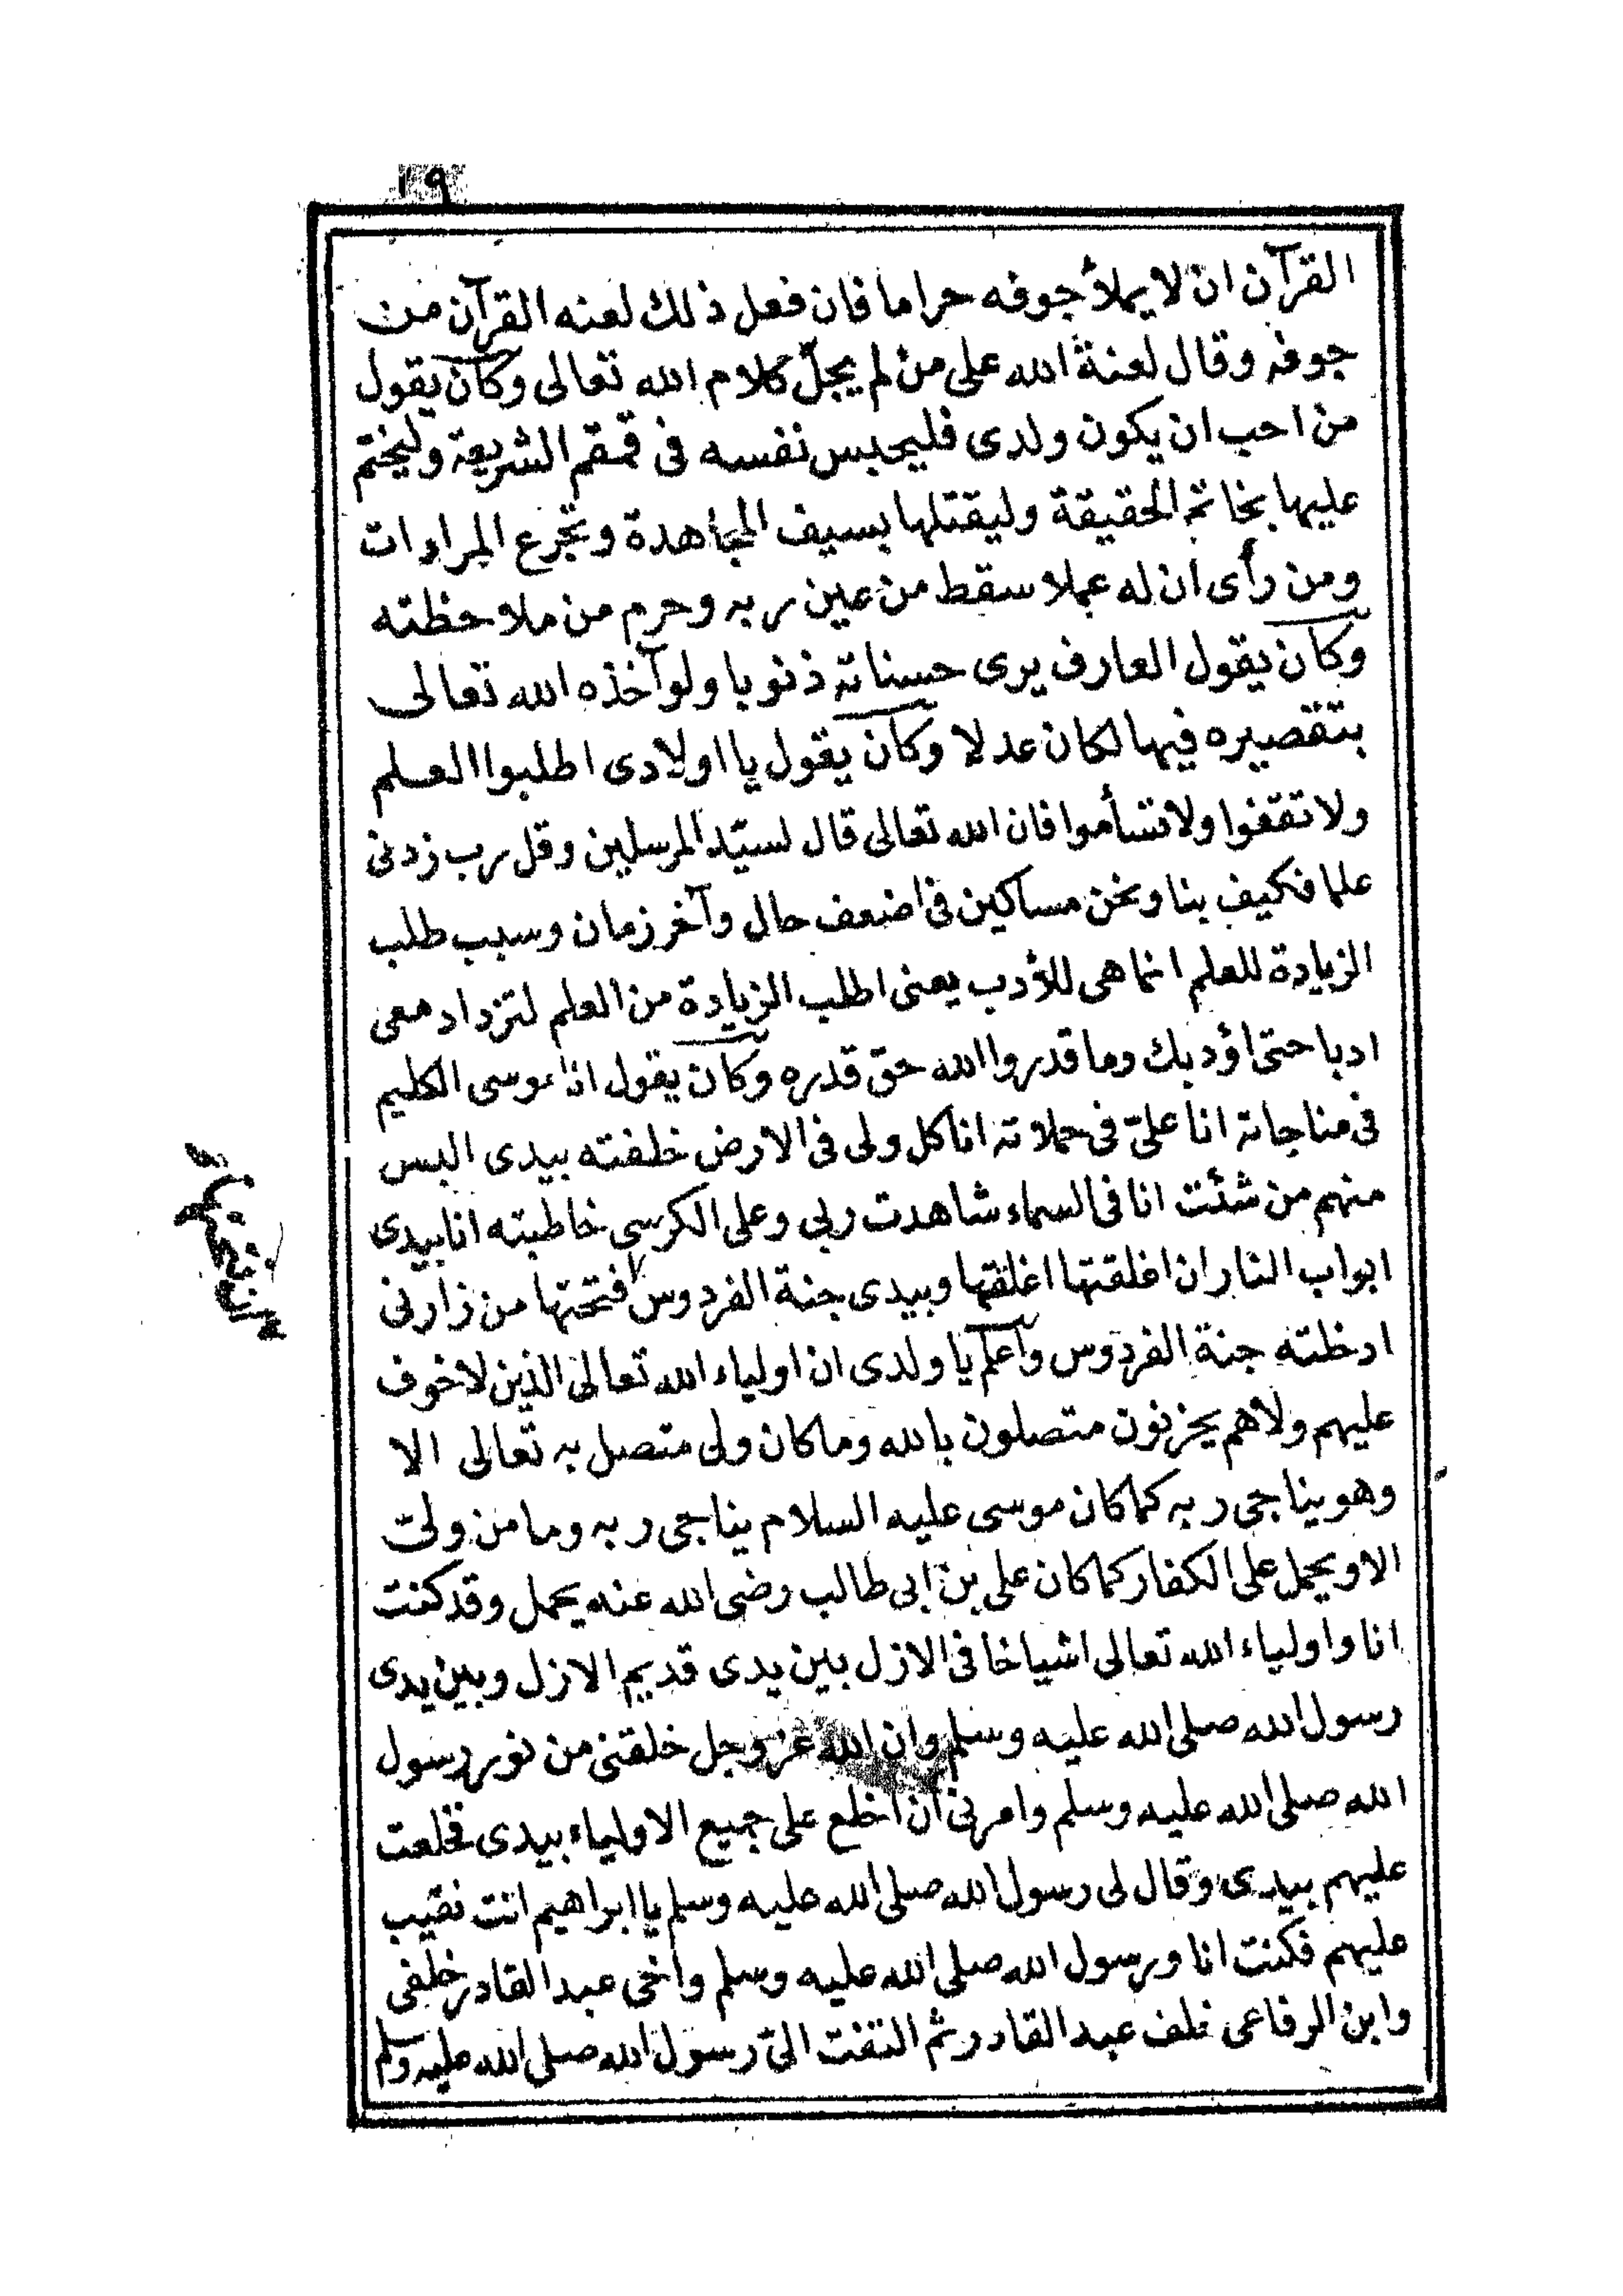 ١٩
القرآن ان لا يملأ جوفه حراما فان فعل ذلك لعنه القرآن من
جوفه وقال لعنة الله على من لم يجلّ كلام الله تعالى وكان يقول
من احب ان يكون ولدى فليحبس نفسه فى قمقم الشريعة وليختم
عليها بخاتم الحقيقة وليقتلها بسيف المجاهدة وتجرع المراءات
ومن رأى ان له عملا سقط من عين ربه وحرم من ملاحظته
وكان يقول العارف يرى حسناته ذنوبا ولو آخذه الله تعالى
بتقصيره فيها لكان عدلا وكان يقول يا اولادى اطلبوا العلم
ولا تقفوا ولا تسأموا فان الله تعالى قال لسيّد المرسلين وقل رب زدنى
علما فكيف بنا ونحن مساكين فى اضعف حال وآخر زمان وسبب طلب
الزيادة للعلم انما هى للأدب يعنى اطلب الزيادة من العلم لتزداد معى
ادبا حتى اؤدبك وما قدروا الله حق قدره وكان يقول انا موسى الكليم
فى مناجاته انا علىّ فى حملاته انا كل ولى فى الارض خلفته بيدى البس
منهم من شئت انا فى السماء شاهدت ربى وعلى الكرسى خاطبته انا بيدى
ابواب النار ان اغلقتها اغلقتها وبيدى جنة الفردوس فتحتها من زارنى
ادخلته جنة الفردوس وآعلم يا ولدى ان اولياء الله تعالى الذين لا خوف
عليهم ولا هم يحزنون متصلون بالله وما كان ولى متصل به تعالى الا
وهو يناجى ربه كما كان موسى عليه السلام يناجى ربه وما من ولىّ
الا ويحمل على الكفار كما كان على بن ابى طالب رضى الله عنه يحمل وقد كنت
انا واولياء الله تعالى اشياخا فى الازل بين يدى قديم الازل وبين يدى
رسول الله صلى الله عليه وسلم وان الله عز وجل خلقنى من نور رسول
الله صلى الله عليه وسلم وامرنى ان اخلع على جميع الاولياء بيدى فخلعت
عليهم بيدى وقال لى رسول الله صلى الله عليه وسلم يا ابراهيم انت نقيب
عليهم فكنت انا ورسول الله صلى الله عليه وسلم واخى عبد القادر خلفى
وابن الرفاعى خلف عبد القادر ثم التفت الىّ رسول الله صلى الله عليه وسلم